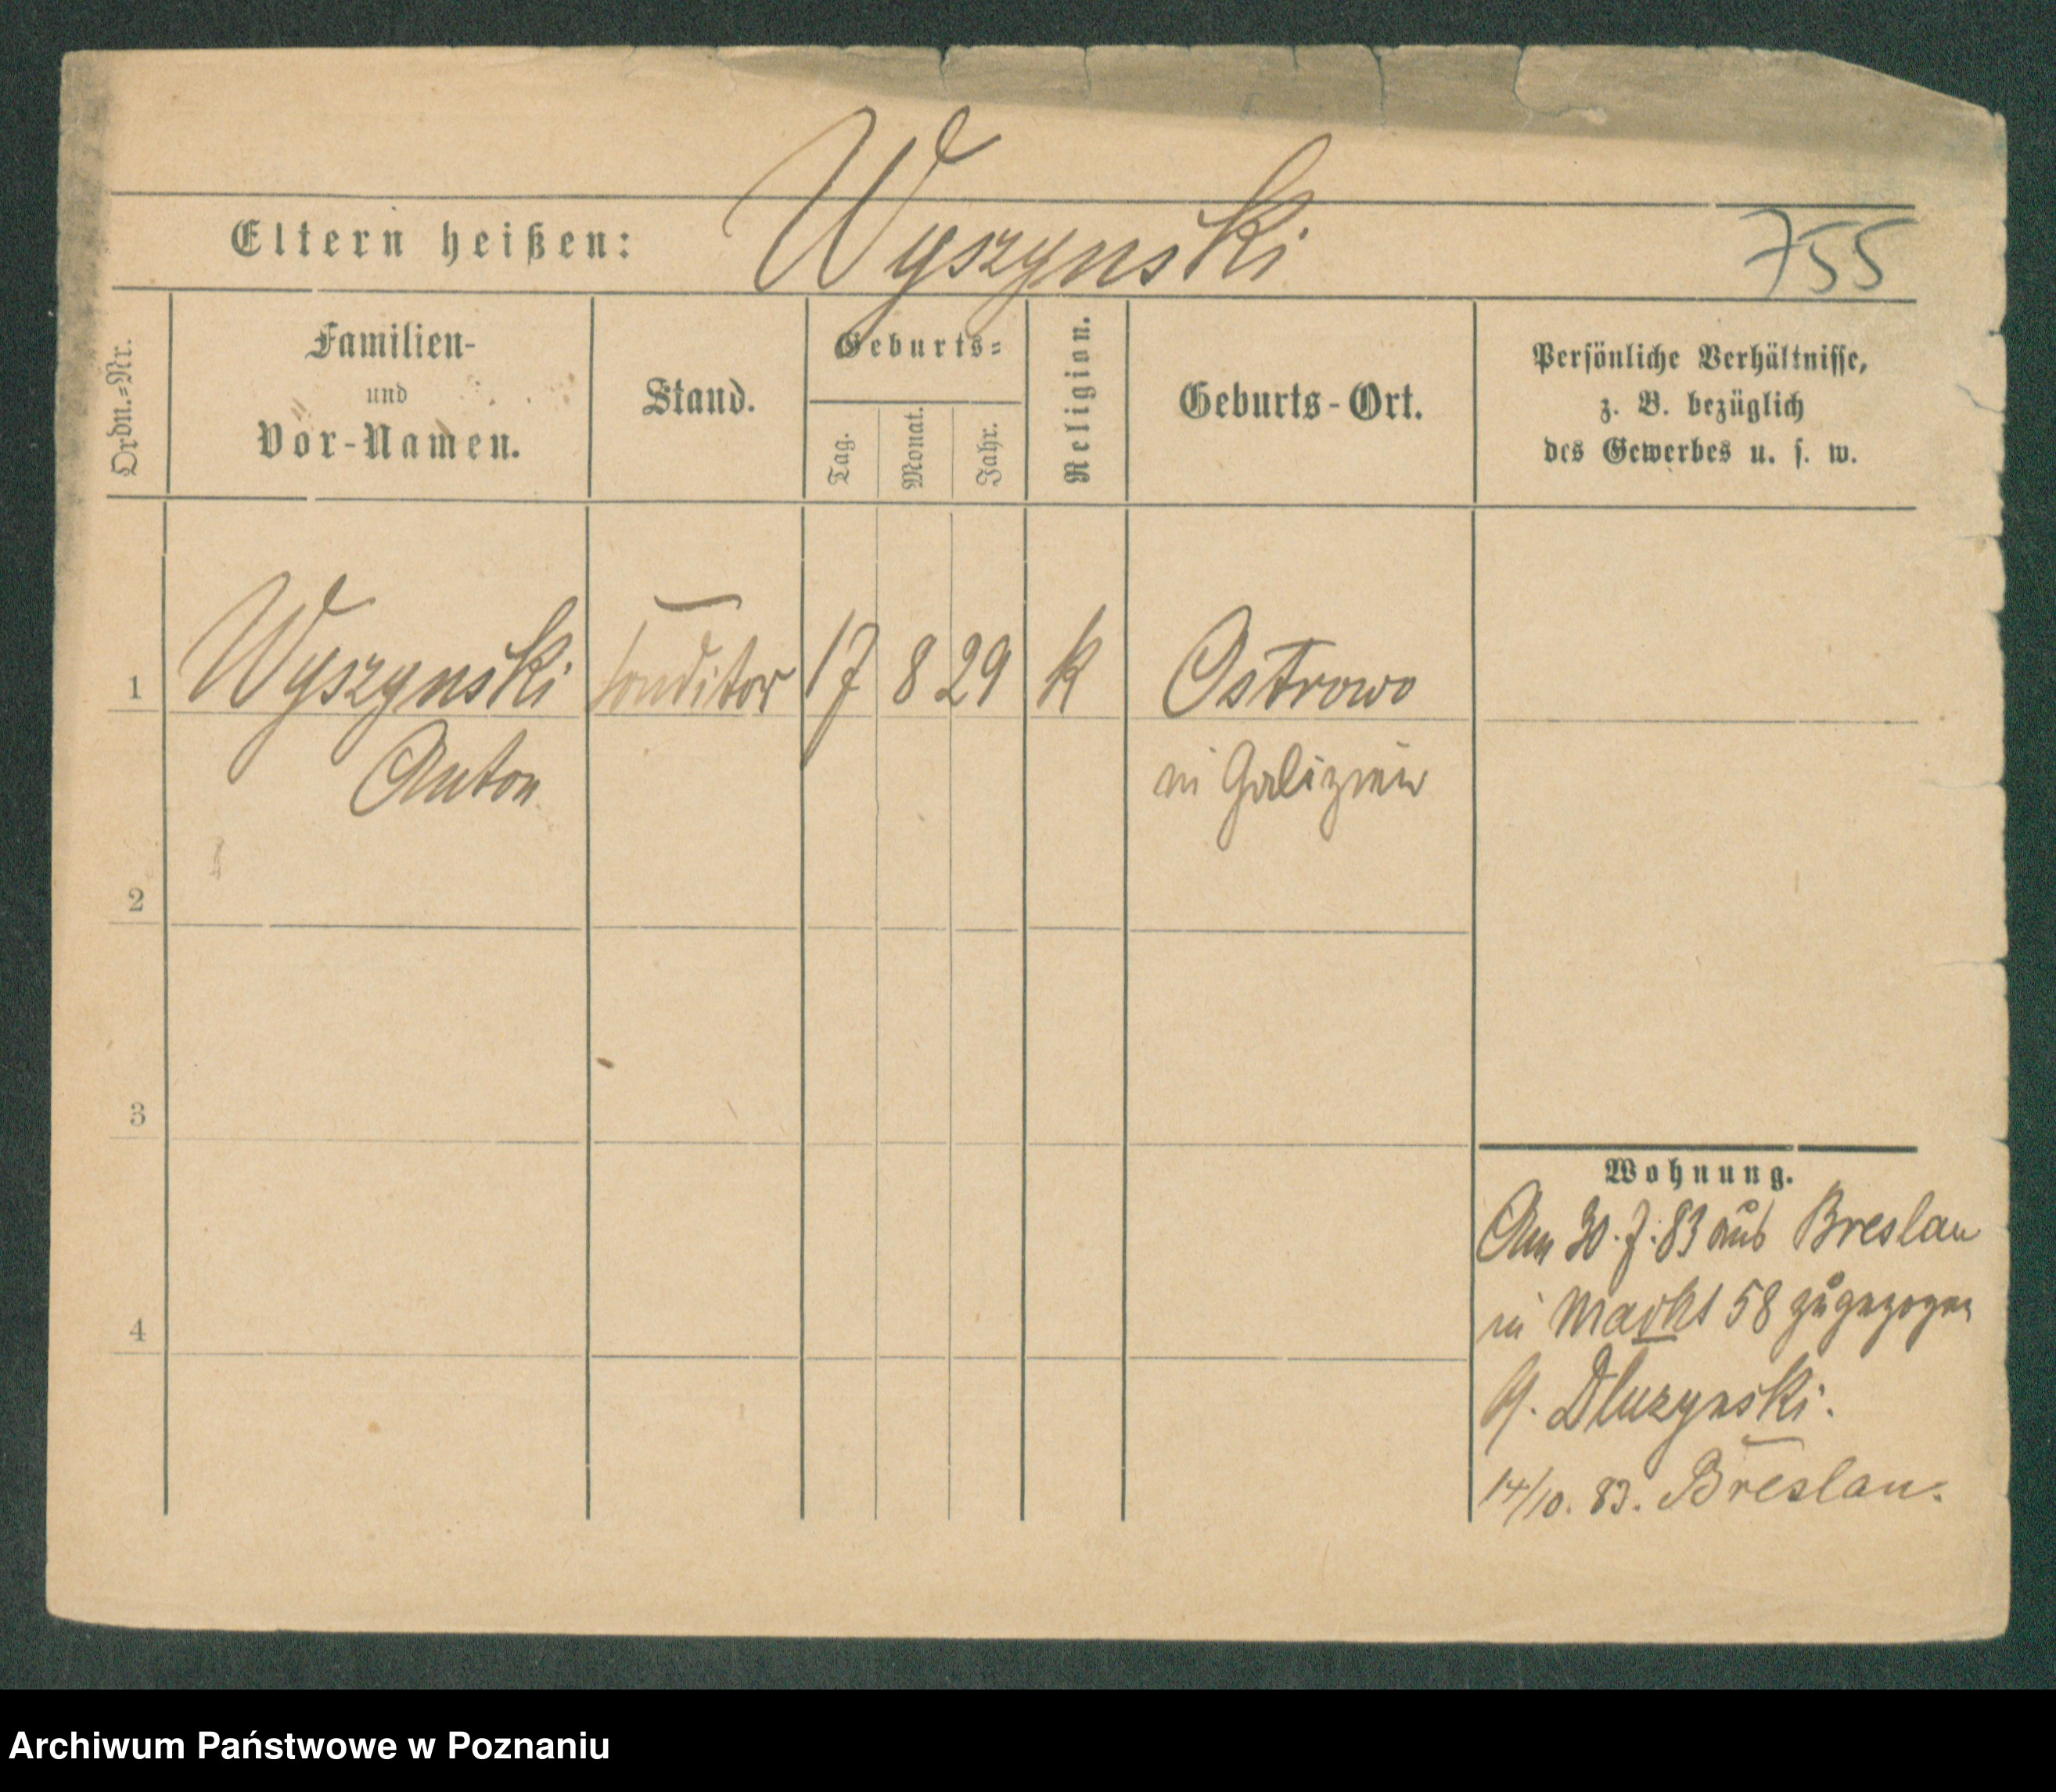 Wyszynski
Eltern heißen:
755
Ordn.=Nr.
Familien-
und
Vor-Namen.
Stand.
Geburts=
Tag.
Monat.
Jahr.
Religion.
Geburts-Ort.
Persönliche Verhältnisse,
z. B. bezüglich
des Gewerbes u. s. w.
1 Wyszynski Conditor 17 8 29 K Ostrowo
Anton in Galizien
2
3
4
Wohnung.
Am 30.7.83 aus Breslau
in Markt 58 zugezogen
Dluzynski.
14/10. 83. Breslau.
Archiwum Państwowe w Poznaniu